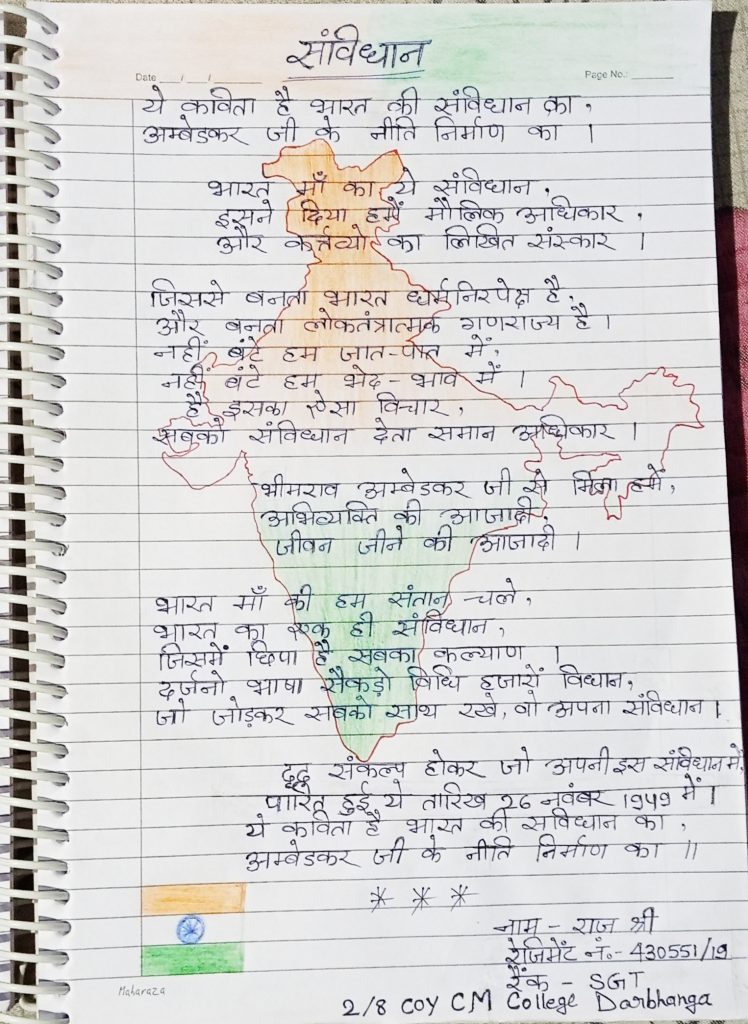 संविधान
Date ___/___/______
Page No.: ______
ये कविता है भारत की संविधान का,
अम्बेडकर जी के नीति निर्माण का ।
भारत माँ का ये संविधान,
इसने दिया हमें मौलिक अधिकार,
और कर्त्तव्यो का लिखित संस्कार ।
जिससे बनता भारत धर्मनिरपेक्ष है,
और बनता लोकतंत्रात्मक गणराज्य है ।
नहीं बंटे हम जात-पात में,
नहीं बंटे हम भेद-भाव में ।
है इसका ऐसा विचार,
सबको संविधान देता समान अधिकार ।
भीमराव अम्बेडकर जी से मिला हमें,
अभिव्यक्ति की आजादी,
जीवन जीने की आजादी ।
भारत माँ की हम संतान चले,
भारत का एक ही संविधान,
जिसमें छिपा है सबका कल्याण ।
दर्जनो भाषा सैकड़ो विधि हजारों विधान,
जो जोड़कर सबको साथ रखे, वो अपना संविधान ।
दृढ़ संकल्प होकर जो अपनी इस संविधान में,
पारित हुई ये तारिख 26 नवंबर 1949 में ।
ये कविता है भारत की सविधान का,
अम्बेडकर जी के नीति निर्माण का ॥
* * *
नाम - राज श्री
रेजिमेंट नं.- 430551/19
रैंक - SGT
2/8 COY CM College Darbhanga
Maharaza